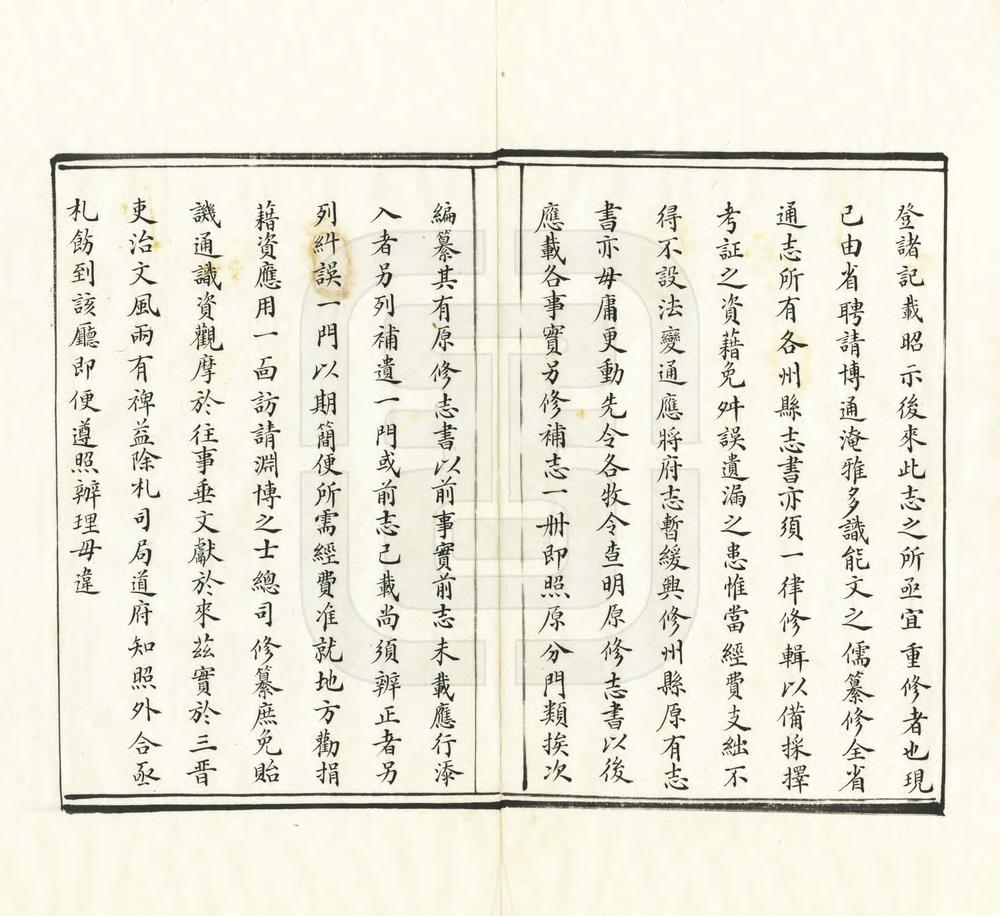 登諸記載昭示後來此志之所亟宜重修者也現
已由省聘請博通淹雅多識能文之儒纂修全省
通志所有各州縣志書亦須一律修輯以備採擇
考証之資藉免舛誤遺漏之患惟當經費支絀不
得不設法變通應將府志暫緩興修州縣原有志
書亦毋庸更動先令各牧令查明原修志書以後
應載各事實另修補志一冊即照原分門類挨次
編纂其有原修志書以前事實前志未載應行添
入者另列補遺一門或前志已載尚須辨正者另
列糾誤一門以期簡便所需經費准就地方勸捐
藉資應用一面訪請淵博之士總司修纂庶免貽
譏通識資觀摩於往事垂文獻於來茲實於三晋
吏治文風兩有裨益除札司局道府知照外合亟
札飭到該廳即便遵照辦理毋違